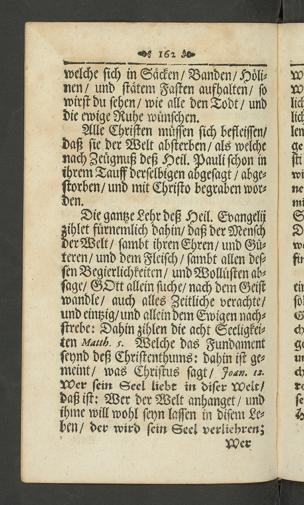 162
welche sich in Säcken / Banden / Höli-
nen / und stätem Fasten aufhalten / so
wirst du sehen / wie alle den Todt / und
die ewige Ruhe wünschen.
Alle Christen müssen sich befleissen /
daß sie der Welt absterben / als welche
nach Zeugnuß deß Heil. Pauli schon in
ihrem Tauff derselbigen abgesagt / abge-
storben / und mit Christo begraben wor-
den.
Die gantze Lehr deß Heil. Evangelij
zihlet fürnemlich dahin / daß der Mensch
der Welt / sambt ihren Ehren / und Gü-
teren / und dem Fleisch / sambt allen des-
sen Begierlichkeiten / und Wollüsten ab-
sage / GOtt allein suche / nach dem Geist
wandle / auch alles Zeitliche verachte /
und eintzig / und allein dem Ewigen nach-
strebe: Dahin zihlen die acht Seeligkei-
ten Matth. 5. Welche das Fundament
seynd deß Christenthums: dahin ist ge-
meint / was Christus sagt / Joan. 12.
Wer sein Seel liebt in diser Welt /
daß ist: Wer der Welt anhanget / und
ihme will wohl seyn lassen in disem Le-
ben / der wird sein Seel verliehren;
Wer